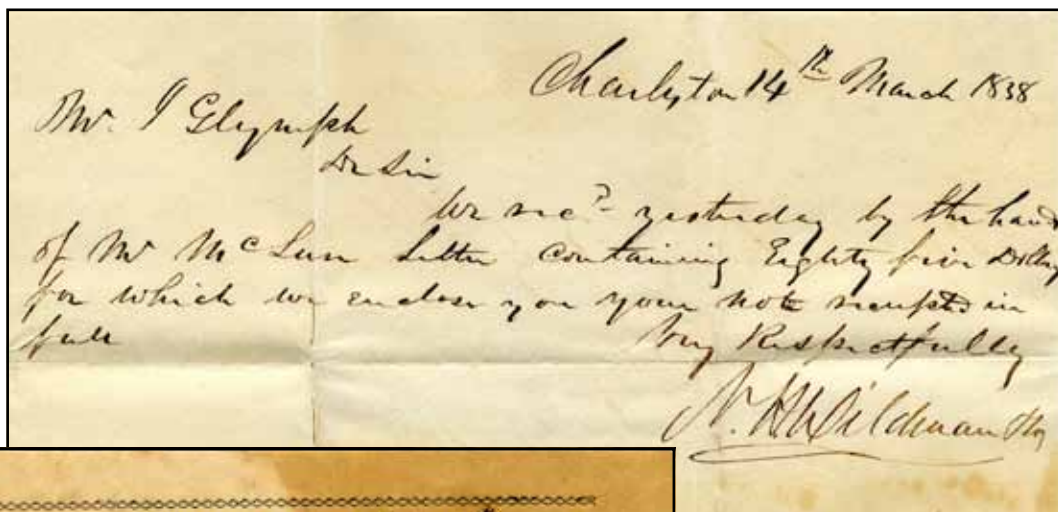 Charleston 14th March 1838
Mr. J Glymph
Dr Sir
We recd yesterday by the hand
of Mr McLure Letter containing Eighty five Dolls
for which we enclose you your note receipted in
full
Very Respectfully
N. H. Wildman